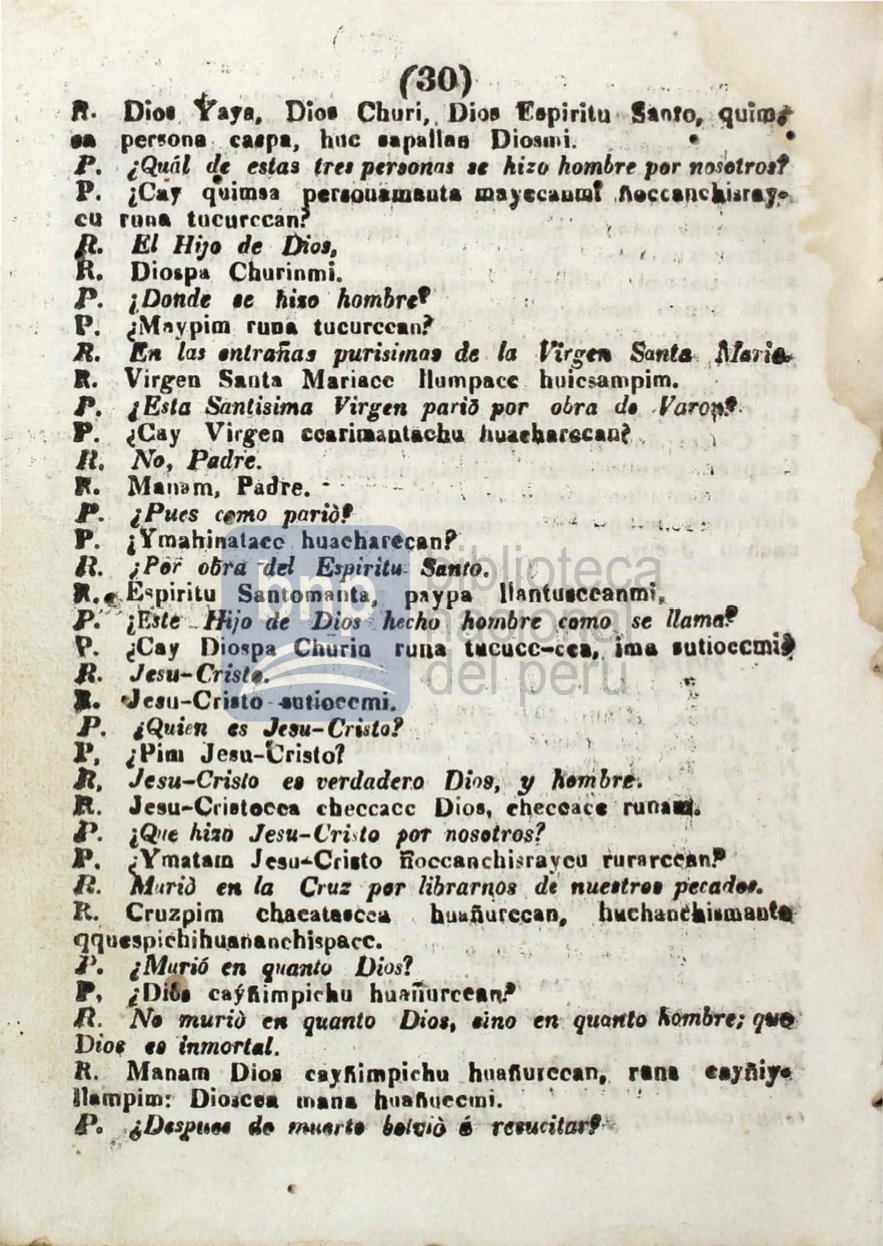 (30)
R. Dios Yaya, Dios Churi, Dios Espiritu Santo, quim-
sa persona caspa, huc sapallan Diosmi.
P. ¿Quál de estas tres personas se hizo hombre por nosotros?
P. ¿Cay quimsa personamanta mayecanmi ñoccanchisray-
cu runa tucurccan?
R. El Hijo de Dios,
R. Diospa Churinmi.
P. ¿Donde se hizo hombre?
P. ¿Maypim runa tucurccan?
R. En las entrañas purisimas de la Virgen Santa Maria
R. Virgen Santa Mariacc llumpacc huicsampim.
P. ¿Esta Santisima Virgen pariò por obra de Varon?
P. ¿Cay Virgen ccarimantachu huacharccan?
R. No, Padre.
R. Manam, Padre.
P. ¿Pues como pariò?
P. ¿Ymahinatacc huacharccan?
R. ¿Por obra del Espiritu Santo.
R. Espiritu Santomanta, paypa llantusccanmi,
P. ¿Este Hijo de Dios hecho hombre como se llama?
P. ¿Cay Diospa Churin runa tucucc-cca, ima sutioccmi?
R. Jesu-Cristo.
R. Jesu-Cristo sutioccmi.
P. ¿Quien es Jesu-Cristo?
P, ¿Pim Jesu-Cristo?
R, Jesu-Cristo es verdadero Dios, y hombre.
R. Jesu-Cristocca checcacc Dios, checcacc runam.
P. ¿Que hizo Jesu-Cristo por nosotros?
P. ¿Ymatam Jesu-Cristo ñoccanchisraycu rurarccan?
R. Muriò en la Cruz por librarnos de nuestros pecados.
R. Cruzpim chacatascca huañurccan, huchanchismanta
qquespichihuananchispacc.
P. ¿Murió en quanto Dios?
P, ¿Dios cayñimpichu huañurccan?
R. No muriò en quanto Dios, sino en quanto hombre; que
Dios es inmortal.
R. Manam Dios cayñimpichu huañurccan, runa cayñiy-
llampim: Dioscca mana huañuccmi.
P. ¿Despues de muerto bolviò á resucitar?
bnp biblioteca
nacional
del perú